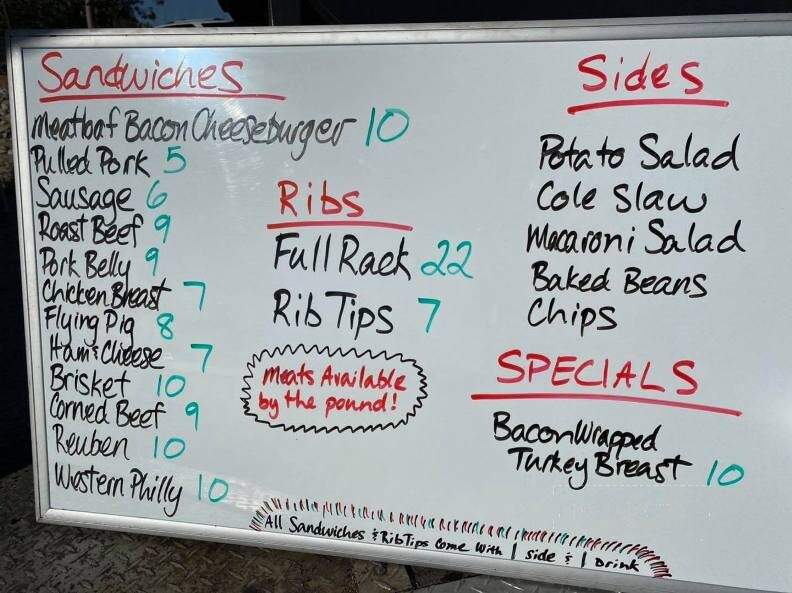 Sandwiches
Meatloaf Bacon Cheeseburger 10
Pulled Pork 5
Sausage 6
Roast Beef 9
Pork Belly 9
Chicken Breast 7
Flying Pig 8
Ham & Cheese 7
Brisket 10
Corned Beef 9
Reuben 10
Western Philly 10
Ribs
Full Rack 22
Rib Tips 7
Meats Available
by the pound!
Sides
Potato Salad
Cole Slaw
Macaroni Salad
Baked Beans
Chips
SPECIALS
Bacon Wrapped
Turkey Breast 10
All Sandwiches & Rib Tips Come With 1 Side & 1 Drink